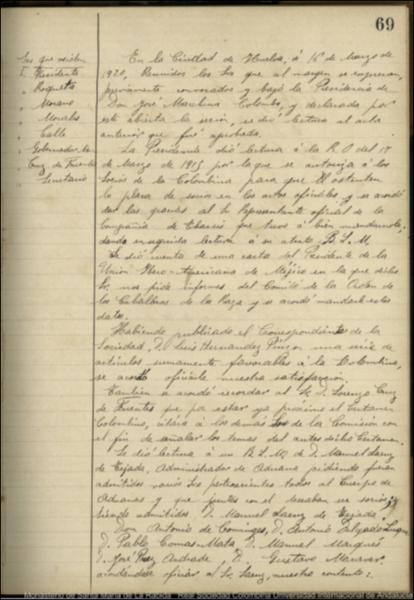 69
Sres que asisten
Sr. Presidente
" Roqueta
" Moreno
" Morales
" Calle
" Gobernador
" Cruz de Fuentes
" Secretario
En la Ciudad de Huelva, á 16 de Marzo de
1920, Reunidos los Sres que al margen se expresan,
previamente convocados y bajo la Presidencia de
Don José Marchena Colombo, y declarada por
este abierta la sesión, se dió lectura al acta
anterior que fué aprobada.
La Presidencia dió lectura á la R. O. del 17
de Marzo de 1915 por la que se autoriza á los
Socios de la Colombina para que ostenten
la placa de socio en los actos oficiales, y se acordó
dar las gracias al Sr Representante oficial de la
Compañia de que tuvo á bien mandarnosla,
dando enseguida lectura á su atento B. L. M.
Se dió cuenta de una carta del Presidente de la
Unión Ibero-Americana de Méjico en la que dicho
Sr. nos pide informes del Comité de la Orden de
los Caballeros de la Raza y se acordó mandarle estos
datos.
Habiendo publicado el Correspondiente de la
Sociedad, D. Luis Hernandez Pinzon una serie de
artículos sumamente favorables á la Colombina,
se acordó oficiarle nuestra satisfacción.
Tambien se acordó recordar al Sr. D. Lorenzo Cruz
de Fuentes que por estar ya próximo el Certamen
Colombino, citara á los demas Sres de la Comisión con
el fin de señalar los temas del antes dicho Certamen.
Se dió lectura á un B. L. M. de D. Manuel Saenz
de Tejada, Administrador de Aduana pidiendo fueran
admitidos varios Sres pertenecientes todos al Cuerpo de
Aduanas y que juntos con el deseaban ser socios,
siendo admitidos D. Manuel Saenz de Tejada,
Don Antonio de Cominges, D. Antonio Salgado
D. Pablo Comas-Mata, D. Manuel Marqués
D. José Ruiz Andrade y D. Gustavo
acordandose oficiar al Sr. Saenz, nuestro contento.
Monasterio de Santa María de La Rábida. Real Sociedad Colombina. Universidad Internacional de Andalucía